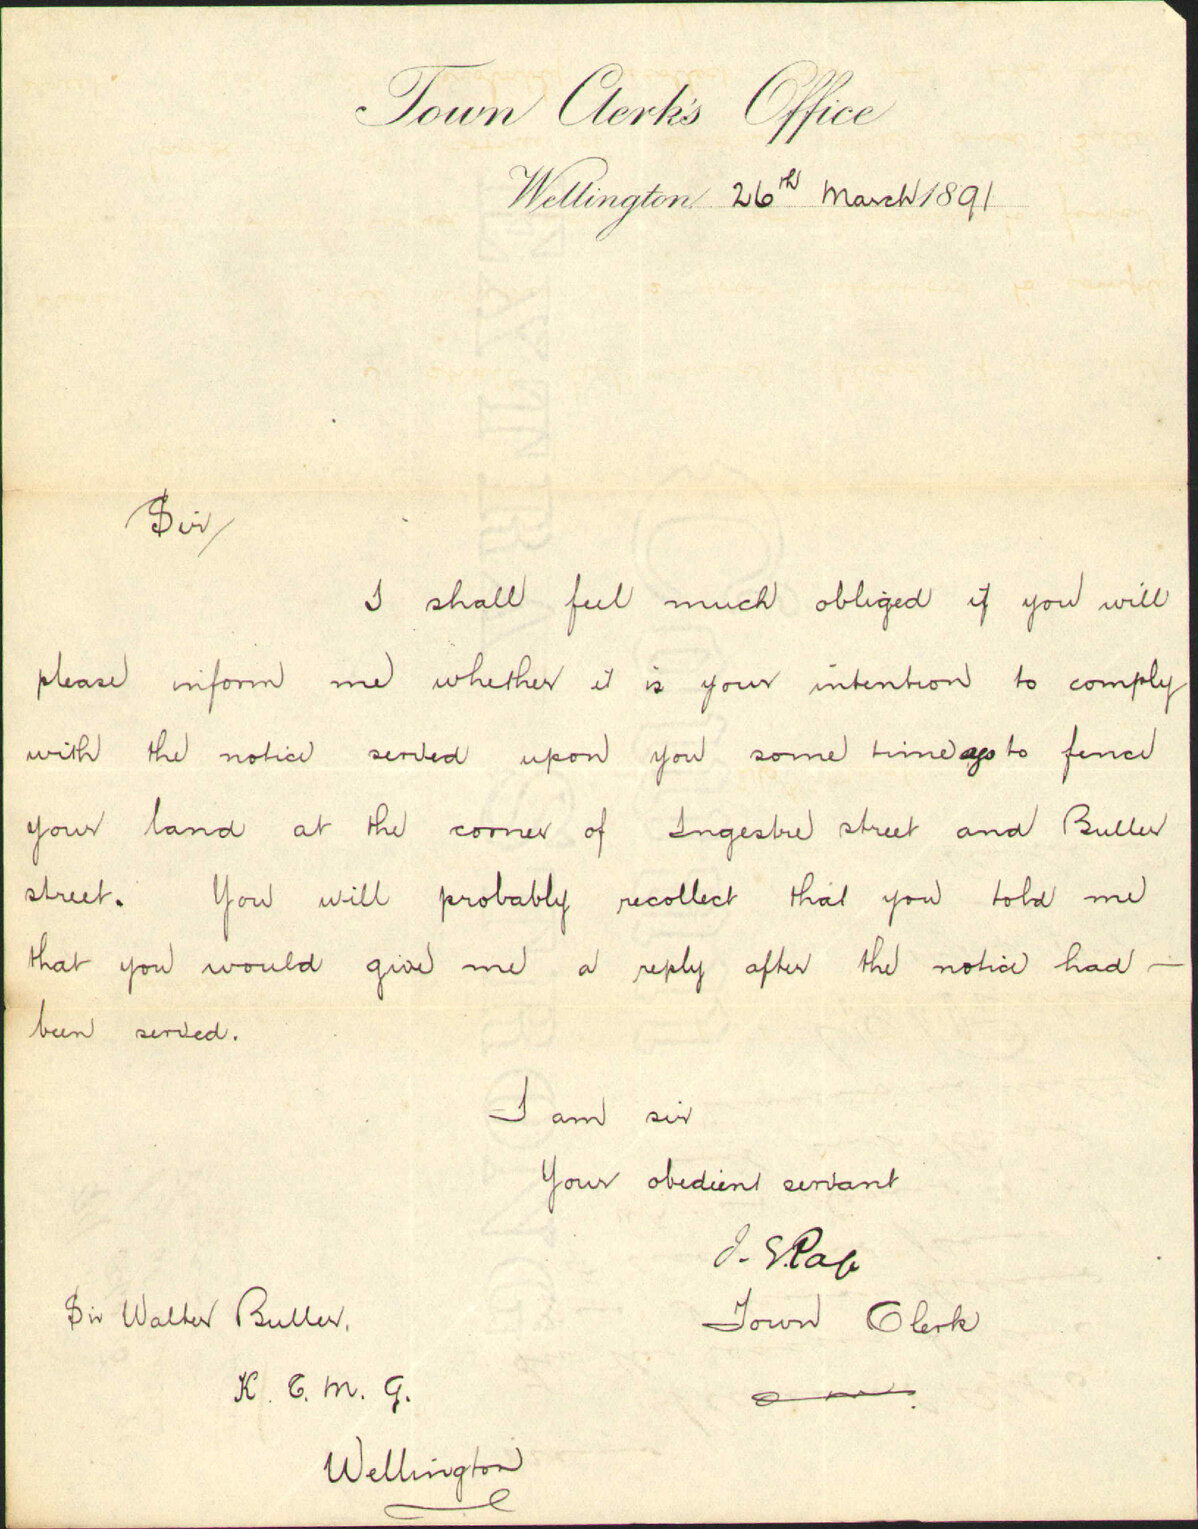 Town Clerk's Office
Wellington 26th March 1891
Sir/
I shall feel much obliged if you will
please inform me whether it is your intention to comply
with the notice served upon you some time ago to fence
your land at the corner of Ingestre street and Buller
street. You will probably recollect that you told me
that you would give me a reply after the notice had —
been served.
I am sir
Your obedient servant
J. S. Page
Town Clerk
Sir Walter Buller,
K. C. M. G.
Wellington